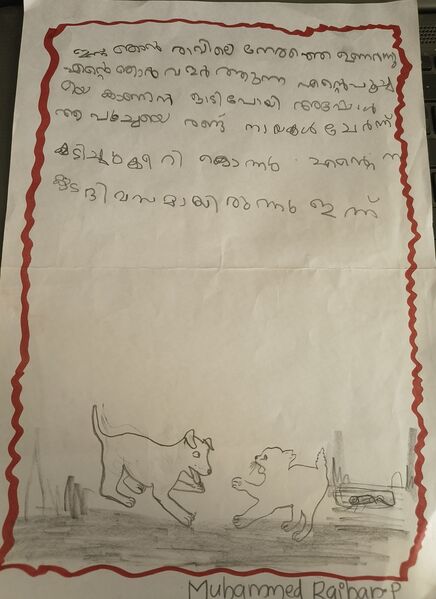 ഇന്ന് ഞാൻ രാവിലെ നേരത്തെ ഉണർന്നു
എന്റെ ഞാൻ വളർത്തുന്ന എന്റെ പൂച്ച
യെ കാണാൻ ഓടിപോയി അപ്പോൾ
ആ പൂച്ചയെ രണ്ട് നായകൾ ചേർന്ന്
കടിച്ചുകീറി കൊന്നു എന്റെ
ദിവസമായിരുന്നു ഇന്ന്
Muhammed Raihan P